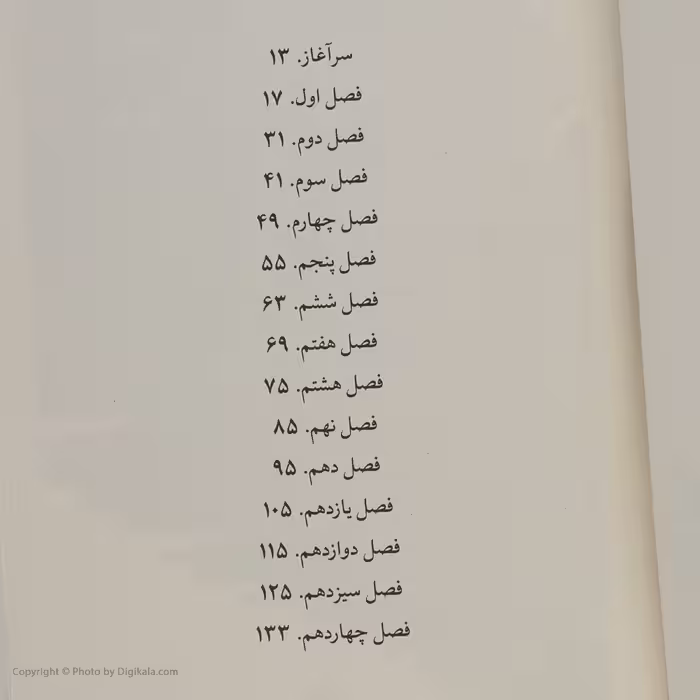 سرآغاز. ۱۳
فصل اول. ۱۷
فصل دوم. ۳۱
فصل سوم. ۴۱
فصل چهارم. ۴۹
فصل پنجم. ۵۵
فصل ششم. ۶۳
فصل هفتم. ۶۹
فصل هشتم. ۷۵
فصل نهم. ۸۵
فصل دهم. ۹۵
فصل یازدهم. ۱۰۵
فصل دوازدهم. ۱۱۵
فصل سیزدهم. ۱۲۵
فصل چهاردهم. ۱۳۳
Copyright © Photo by Digikala.com